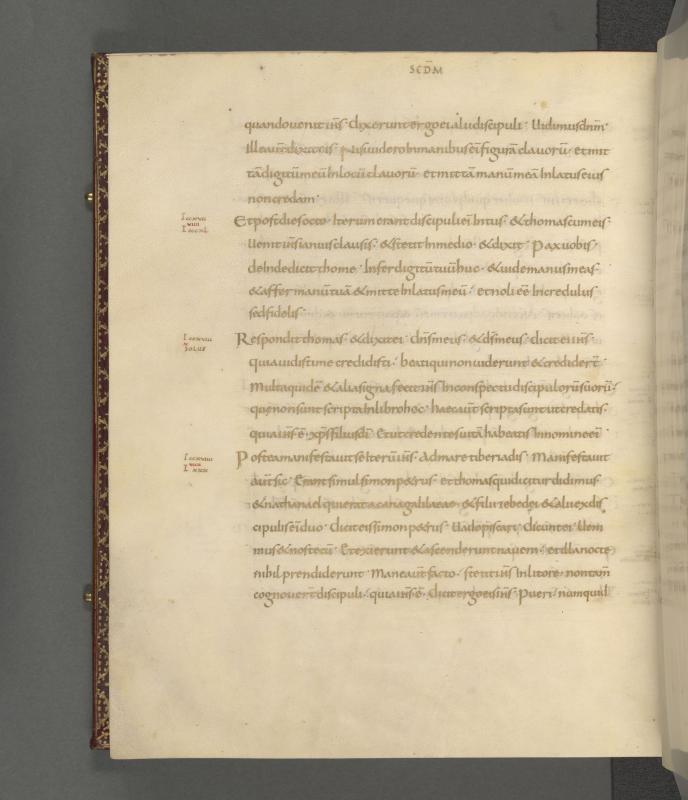 SCDM
quando uenit ih̅s · dixerunt ergo ei alii discipuli · Uidimus dn̅m ·
Ille aut̅ dixit eis · Nisi uidero in manibus ei̅ figura̅ clauoru̅ · et mit
ta̅ digitu̅ meu̅ In locu̅ clauoru̅ · et mitta̅ manu̅ mea̅ In latus eius
non credam ·
Et post dies octo · Iterum erant discipuli ei̅ Intus · & thomas cum eis ·
Uenit ih̅s ianuis clausis · & stetit In medio · & dixit · Pax uobis ·
deInde dicit thome · Infer digitu̅ tuu̅ huc · & uide manus meas ·
& affer manu̅ tua̅ & mitte In latus meu̅ · et noli ee̅ Incredulus
sed fidelis ·
Respondit thomas · & dixit ei · dn̅s meus · & ds̅ meus · dicit ei ih̅s ·
quia uidisti me credidisti · beati qui non uiderunt & credider̅t ·
Multa quide̅ & alia signa fecit ih̅s In conspectu discipuloru̅ suoru̅ ·
que non sunt scripta In libro hoc · haec aut̅ scripta sunt ut credatis ·
quia ih̅s e̅ · xp̅s filius di̅ · Et ut credentes uita̅ habeatis In nomine ei̅
Postea manifestauit se Iteru̅ ih̅s · Ad mare tiberiadis · Manifestauit
aut̅ sic · Erant simul simon p&rus · et thomas qui dicitur didimus
& nathanael qui erat a cana galilaeae · & filii zebedei · & alii ex dis
cipulis ei̅ duo · dicit eis simon p&rus · Uado piscari · dicunt ei · Ueni
mus & nos tecu̅ · Et exierunt & ascenderunt nauem · et Illa nocte
nihil prendiderunt · Mane aut̅ facto · stetit ih̅s In litore · non tam̅
cognouer̅t discipuli · quia ih̅s e̅ · dicit ergo eis ih̅s · Pueri · numquid